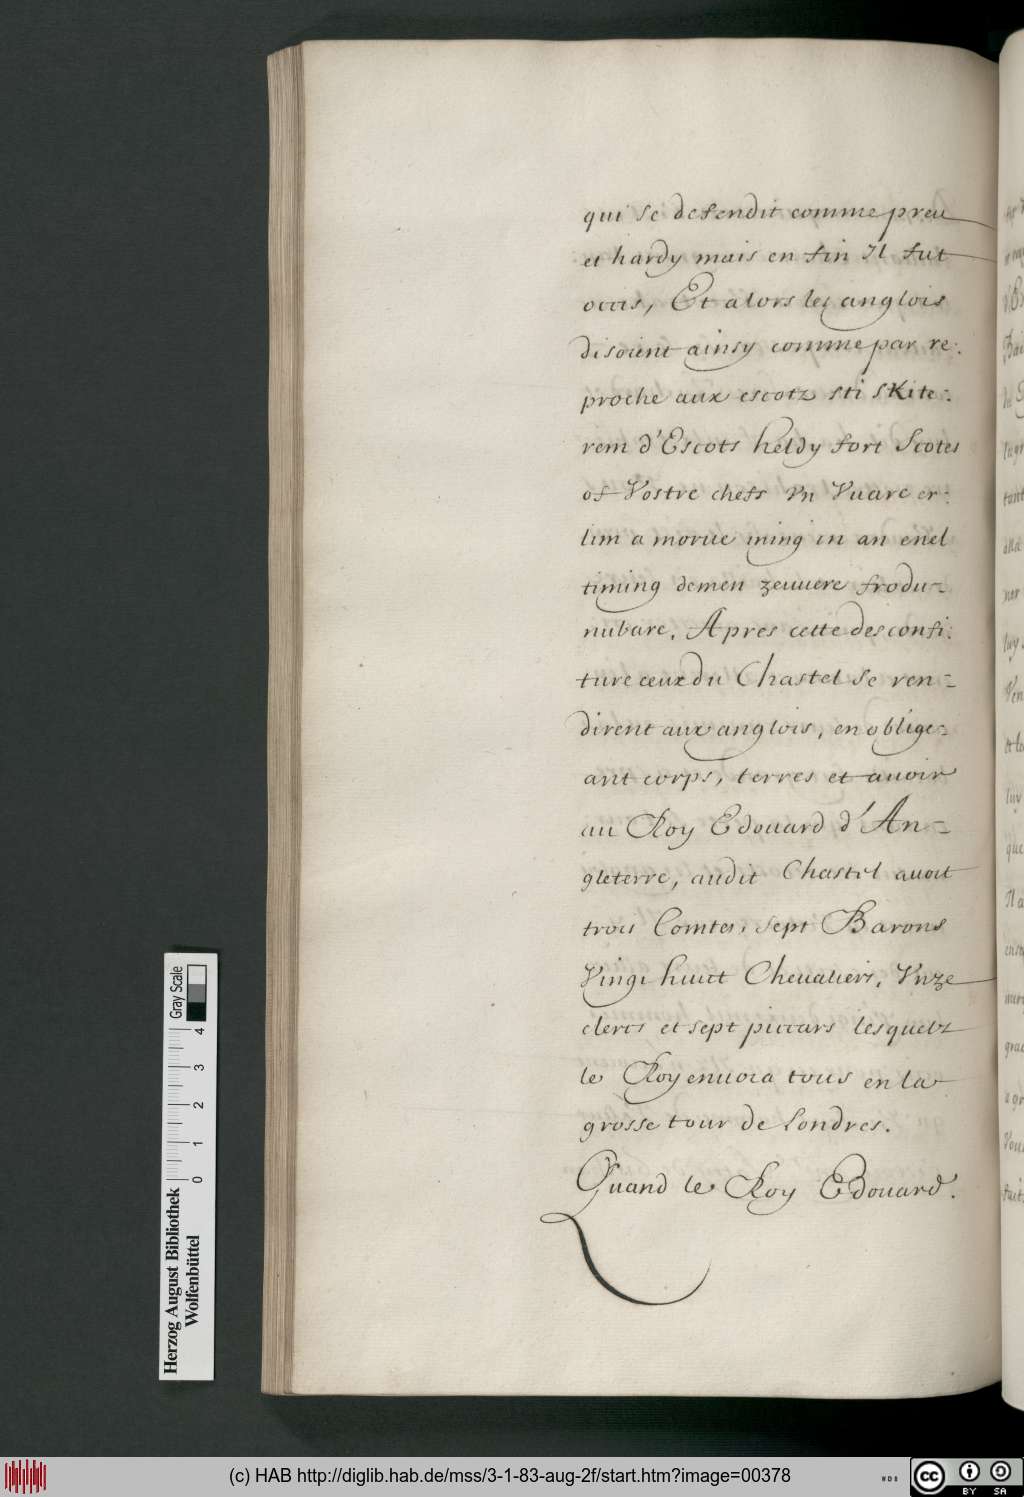 qui se defendit comme preu
et hardy mais en fin Il fut
occis, Et alors les anglois
disoient ainsy comme par re-
proche aux escotz sti skite-
rem d'Escots heldy fort Scotes
of Vostre chefs Vn Vuare er-
lim a morue ining in an enel
timing demen zeuuere frodu-
nubare. Apres cette desconfi-
ture ceux du Chastel se ren-
dirent aux anglois, en oblige-
ant corps, terres et auoir
au Roy Edouard d'An-
gleterre, audit Chastel auoit
trois Comtes, sept Barons
Vingt huict Cheualiers, Vnze
clercs et sept piccars lesquelz
le Roy enuoia tous en la
grosse tour de londres.
Quand le Roy Edouard.
Herzog August Bibliothek
Wolfenbüttel
0 1 2 3 4
Gray Scale
(c) HAB http://diglib.hab.de/mss/3-1-83-aug-2f/start.htm?image=00378
WDB
cc
BY SA